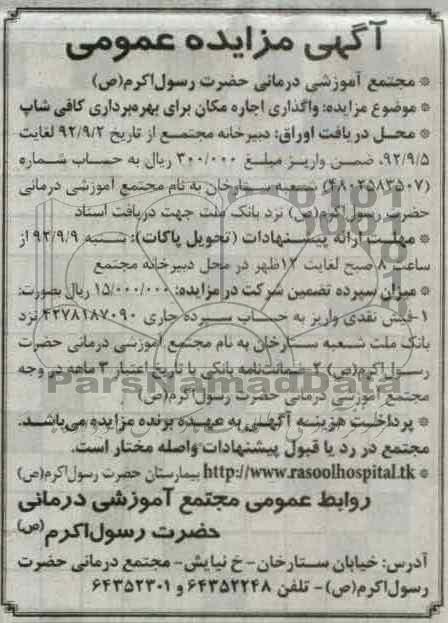 آگهی مزایده عمومی
* مجتمع آموزشی درمانی حضرت رسول‌اکرم(ص)
* موضوع مزایده: واگذاری اجاره مکان برای بهره‌برداری کافی شاپ
* محل دریافت اوراق: دبیرخانه مجتمع از تاریخ ۹۲/۹/۲ لغایت
۹۲/۹/۵، ضمن واریز مبلغ ۳۰۰/۰۰۰ ریال به حساب شماره
(۴۸۰۲۵۸۳۵۰۷) شعبه ستارخان به نام مجتمع آموزشی درمانی
حضرت رسول‌اکرم(ص) نزد بانک ملت جهت دریافت اسناد
* مهلت ارائه پیشنهادات (تحویل پاکات): شنبه ۹۲/۹/۹ از
ساعت ۸ صبح لغایت ۱۲ظهر در محل دبیرخانه مجتمع
* میزان سپرده تضمین شرکت در مزایده: ۱۵/۰۰۰/۰۰۰ ریال بصورت:
۱-فیش نقدی واریز به حساب سپرده جاری ۴۲۷۸۱۸۷۰۹۰ نزد
بانک ملت شعبه ستارخان به نام مجتمع آموزشی درمانی حضرت
رسول‌اکرم(ص) ۲-ضمانت‌نامه بانکی با تاریخ اعتبار ۳ ماهه در وجه
مجتمع آموزشی درمانی حضرت رسول‌اکرم(ص)
ParsNamadData
* پرداخت هزینه آگهی به عهده برنده مزایده می‌باشد.
مجتمع در رد یا قبول پیشنهادات واصله مختار است.
* http://www.rasoolhospital.tk بیمارستان حضرت رسول‌اکرم(ص)
روابط عمومی مجتمع آموزشی درمانی
حضرت رسول‌اکرم(ص)
آدرس: خیابان ستارخان- خ نیایش- مجتمع درمانی حضرت
رسول‌اکرم(ص)- تلفن ۶۴۳۵۲۲۴۸ و ۶۴۳۵۲۳۰۱